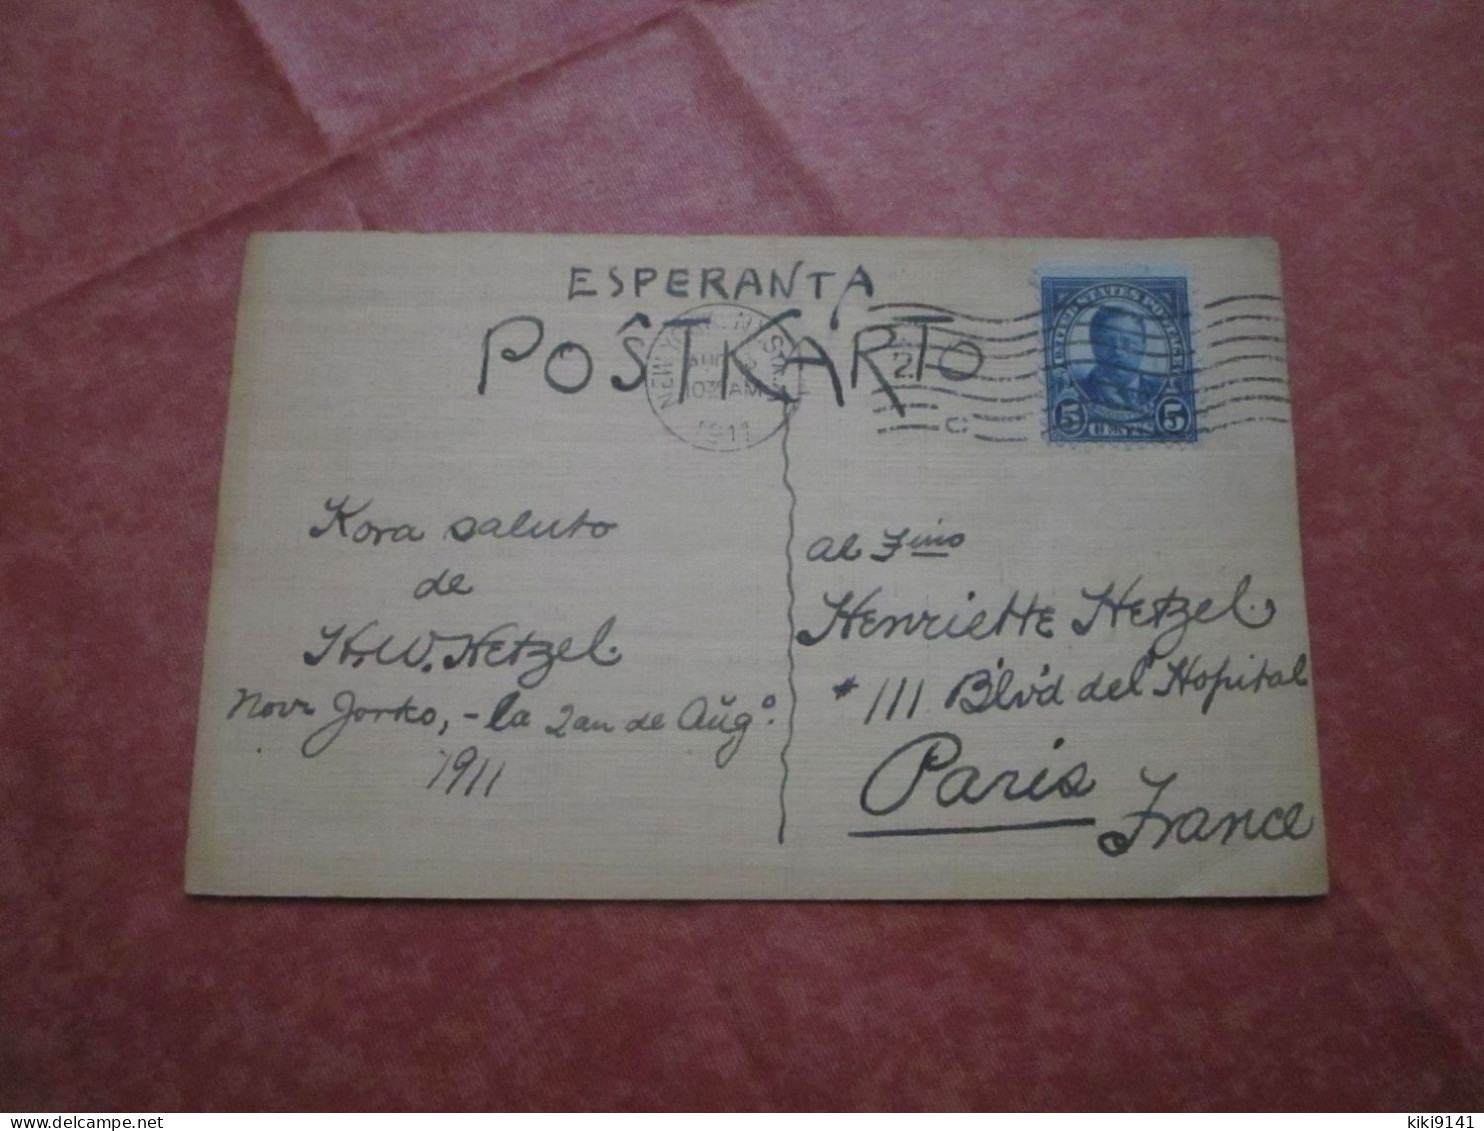 ESPERANTA
POŜTKARTO
NEW YORK, N.Y. STA.
AUG
10 30 AM
1911
2
C
UNITED STATES POSTAGE
5 CENTS 5
Kora saluto
de
H. W. Hetzel.
Nov-Jorko, - la 2an de Aŭgo.
1911
al Fino
Henriette Hetzel.
# 111 Blvd del' Hopital
Paris
France
kiki9141